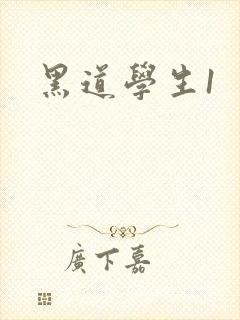 黑道學生1
廣下嘉